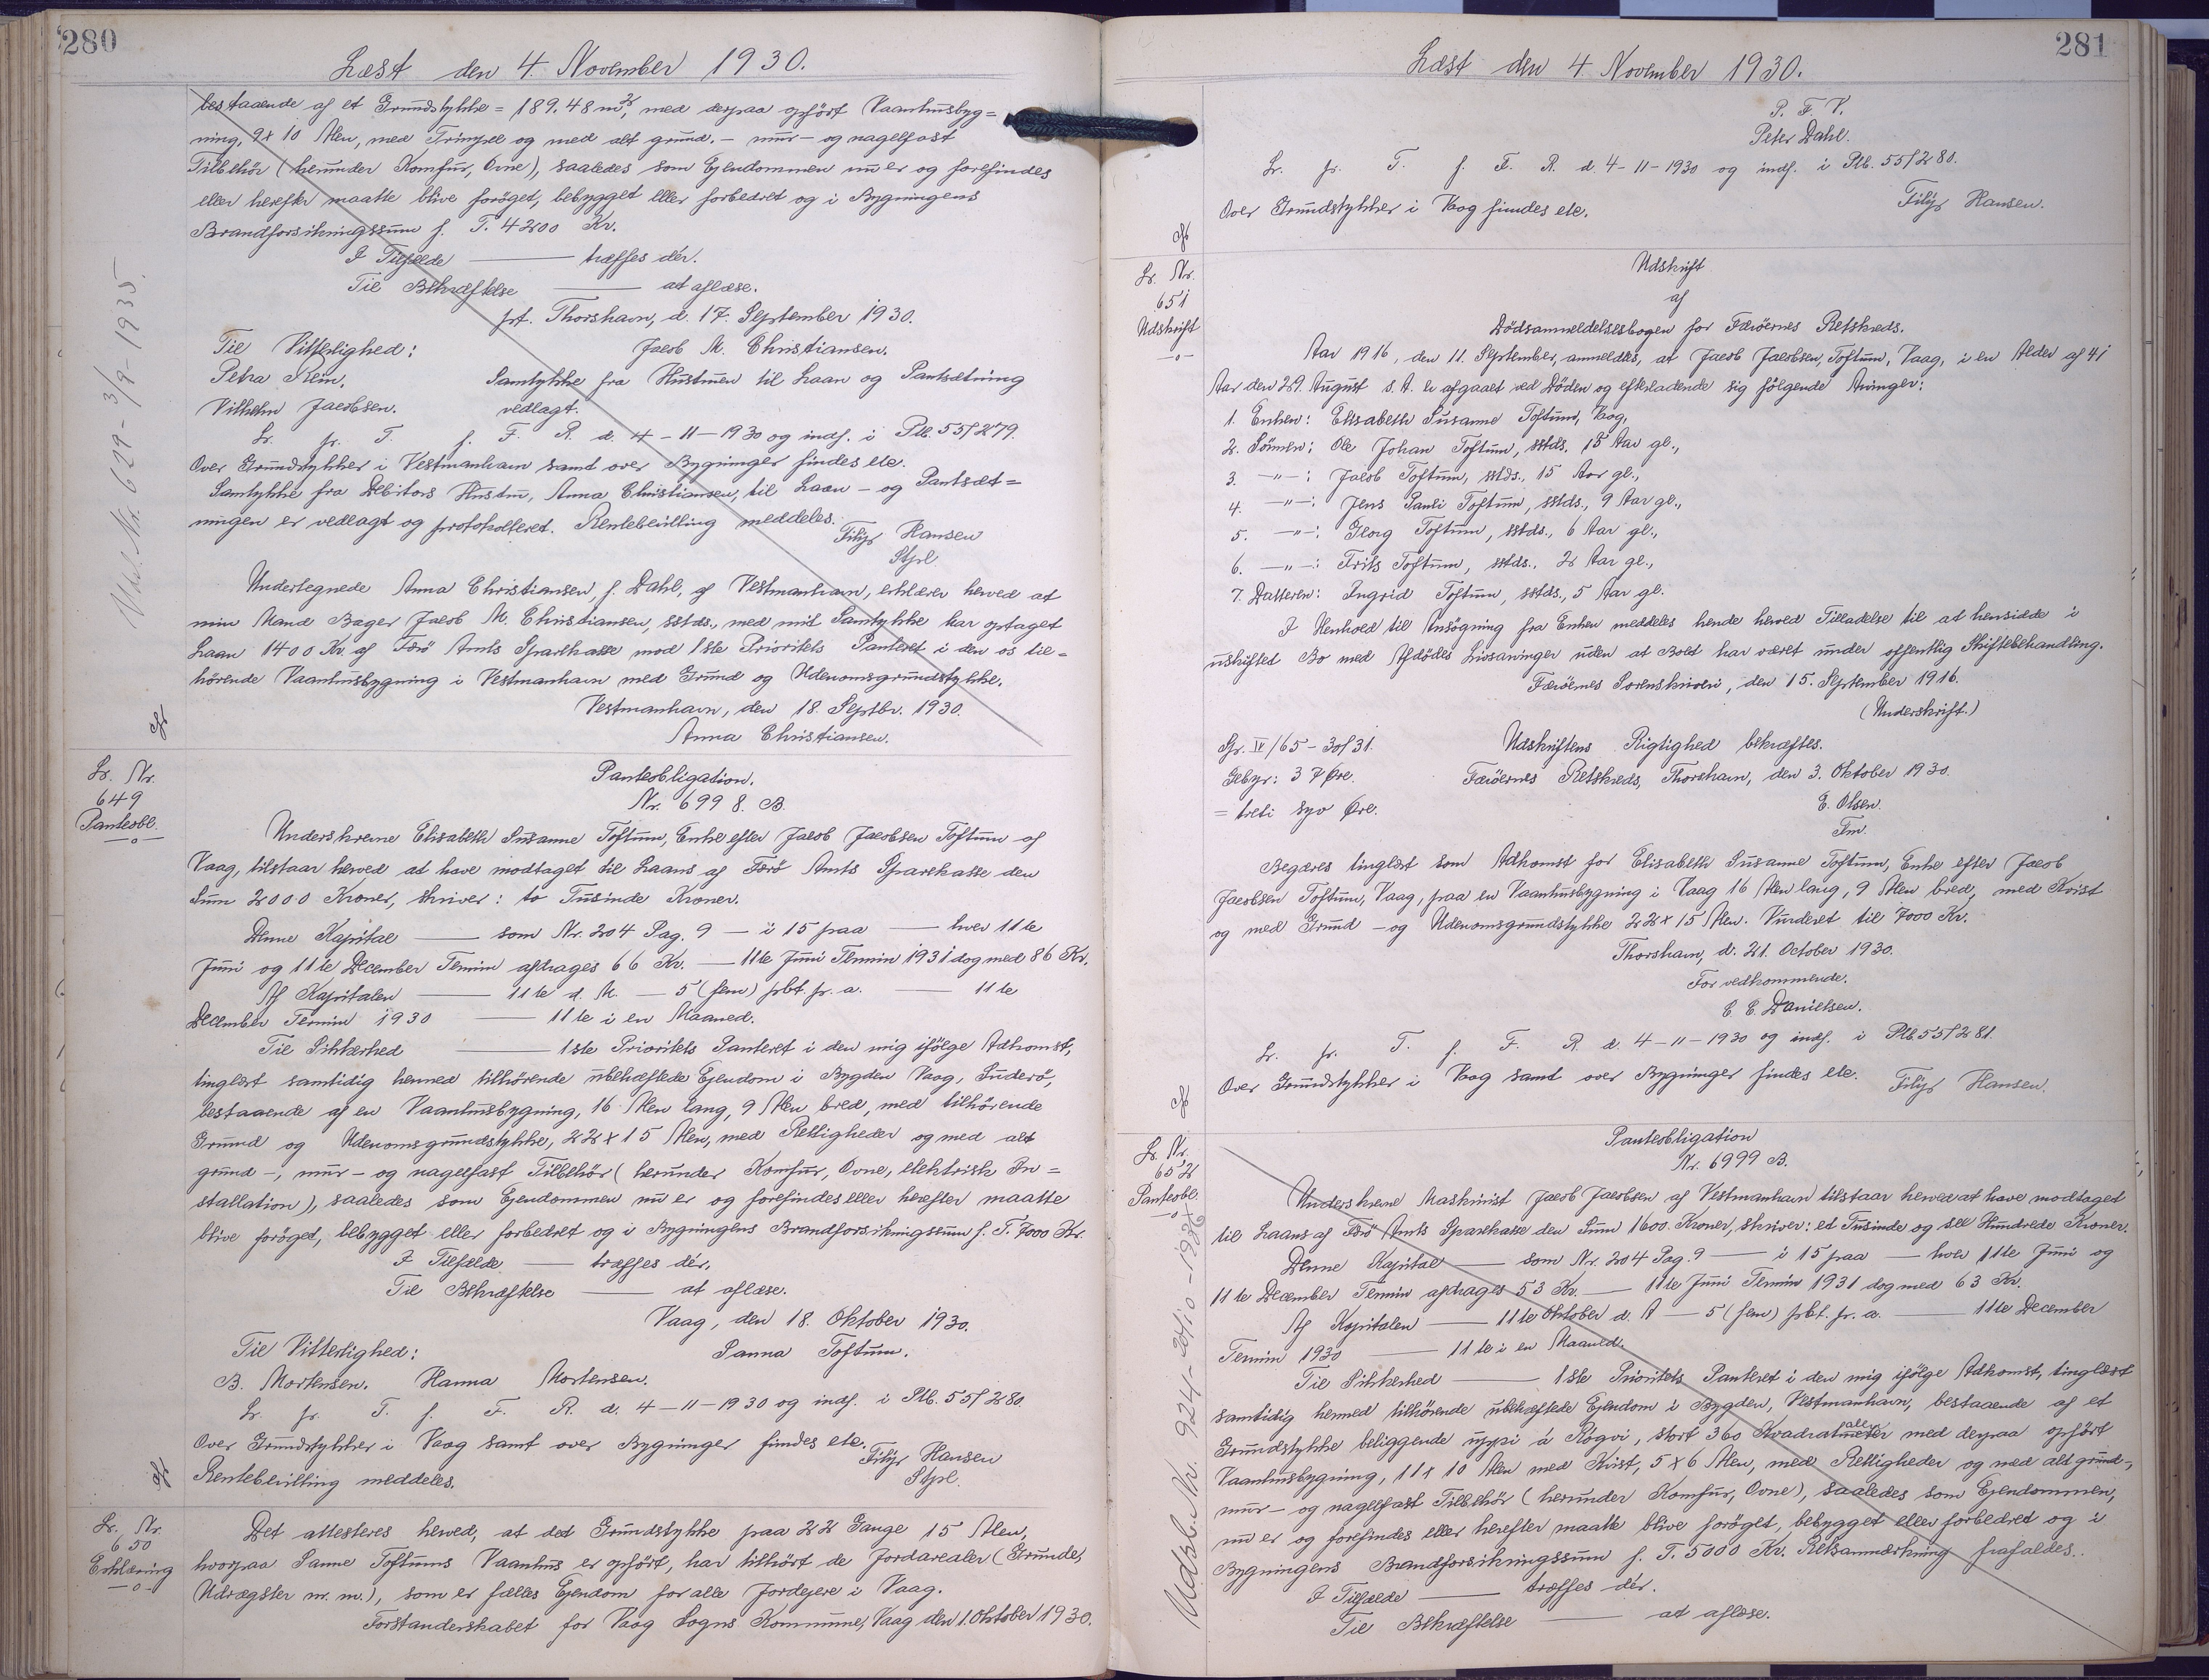 280
Læst den 4. November 1930.
bestaaende af et Grundstykke = 189.48 m², med derpaa opført Vaanhusbyg=
ning, 9 x 10 Alen, med Trimpel og med alt grund- mur- og nagelfast
Tilbehör (herunder Komfur, Ovne), saaledes som Ejendommen nu er og forefindes
eller herefter maatte blive foröget, bebygget eller forbedret og i Bygningens
Brandforsikringssum f. T. 4200 Kr.
I Tilfælde ——— træffes dér.
Til Bekræftelse ——— at aflæse.
prt. Thorshavn, d. 17. September 1930.
Til Vitterlighed: Jacob M. Christiansen.
Petra Rein. Samtykke fra Hustruen til Laan og Pantsætning
Vilhelm Jacobsen. vedlagt.
Lr. pr. T. f. F. R. d. 4-11-1930 og indf. i Ptb. 55/279.
Over Grundstykker i Vestmanhavn samt over Bygninger findes etc.
Samtykke fra Debitors Hustru, Anna Christiansen, til Laan- og Pantsæt=
ningen er vedlagt og protokolleret. Rentebevilling meddeles.
Filip Hansen
Stpl
Undertegnede Anna Christiansen, f. Dahl, af Vestmanhavn, erklærer herved at
min Mand Bager Jacob M. Christiansen, sstds., med mit Samtykke har optaget
Laan 1400 Kr. af Færö Amts Sparekasse mod 1ste Prioritets Panteret i den os til=
hörende Vaanhusbygning i Vestmanhavn med Grund og Udenomsgrundstykke.
Vestmanhavn, den 18. Septbr. 1930.
Anna Christiansen.
Udsl. Nr. 629 - 3/9-1935.
Lr. Nr.
649
Panteobl.
—o—
Panteobligation.
Nr. 6998. B.
Underskrevne Elisabeth Susanne Toftum, Enke efter Jacob Jacobsen Toftum af
Vaag, tilstaar herved at have modtaget til Laans af Færö Amts Sparekasse den
Sum 2000 Kroner, skriver: to Tusinde Kroner.
Denne Kapital ——— som Nr. 204 Pag. 9 — i 15 paa ——— hver 11te
Juni og 11te December Termin afdrages 66 Kr. — 11te Juni Termin 1931 dog med 86 Kr.
Af Kapitalen ——— 11te d. M. — 5 (fem) pCt. pr. a. ——— 11te
December Termin 1930 ——— 11te i en Maaned.
Til Sikkerhed ——— 1ste Prioritets Panteret i den mig ifölge Adkomst,
tinglæst samtidig hermed tilhörende ubehæftede Ejendom i Bygden Vaag, Suderö,
bestaaende af en Vaanhusbygning, 16 Alen lang, 9 Alen bred, med tilhörende
Grund og Udenomsgrundstykke, 22 x 15 Alen, med Rettigheder og med alt
grund-, mur- og nagelfast Tilbehör (herunder Komfur, Ovne, elektrisk In=
stallation), saaledes som Ejendommen nu er og forefindes eller herefter maatte
blive foröget, bebygget eller forbedret og i Bygningens Brandforsikringssum f. T. 7000 Kr.
I Tilfælde ——— træffes dér.
Til Bekræftelse ——— at aflæse.
Vaag, den 18. Oktober 1930.
Til Vitterlighed: Sanna Toftum.
B. Mortensen. Hanna Mortensen.
Lr. pr. T. f. F. R. d. 4-11-1930 og indf. i Ptb. 55/280.
Over Grundstykker i Vaag samt over Bygninger findes etc.
Filip Hansen
Rentebevilling meddeles. Stpl.
Lr. Nr.
650
Erklæring
—o—
Det attesteres herved, at det Grundstykke paa 22 Gange 15 Alen,
hvorpaa Sanne Toftums Vaanhus er opført, har tilhørt de Jordarealer (Grunde,
Udrægster m. m.), som er fælles Ejendom for alle Jordejere i Vaag.
Forstanderskabet for Vaag Sogns Kommune, Vaag den 1. Oktober 1930.
281
Læst den 4. November 1930.
P. F. V.
Peter Dahl.
Lr. pr. T. f. F. R. d. 4-11-1930 og indf. i Ptb. 55/280.
Over Grundstykker i Vaag findes etc. Filip Hansen.
Lr. Nr.
651
Udskrift
—o—
Udskrift
af
Dödsanmeldelsesbogen for Færöernes Retskreds.
Aar 1916, den 11. September, anmeldtes, at Jacob Jacobsen, Toftum, Vaag, i en Alder af 41
Aar den 29. August s. A. er afgaaet ved Döden og efterladende sig fölgende Arvinger:
1. Enken: Elisabeth Susanne Toftum, Vaag,
2. Sönnen: Ole Johan Toftum, sstds., 18 Aar gl.,
3. —"—: Jacob Toftum, sstds., 15 Aar gl.,
4. —"—: Jens Pauli Toftum, sstds., 9 Aar gl.,
5. —"—: Georg Toftum, sstds., 6 Aar gl.,
6. —"—: Frits Toftum, sstds., 2 Aar gl.,
7. Datteren: Ingrid Toftum, sstds., 5 Aar gl.
I Henhold til Ansögning fra Enken meddeles hende herved Tilladelse til at hensidde i
uskiftet Bo med Afdödes Livsarvinger uden at Boet har været under offentlig Skiftebehandling.
Færöernes Sorenskriveri, den 15. September 1916.
(Underskrift.)
Gr. IV/65 - 30/31. Udskriftens Rigtighed bekræftes.
Gebyr: 37 Øre. Færöernes Retskreds, Thorshavn, den 3. Oktober 1930.
= treti syv Øre. E. Olsen.
Fm.
Begæres tinglæst som Adkomst for Elisabeth Susanne Toftum, Enke efter Jacob
Jacobsen Toftum, Vaag, paa en Vaanhusbygning i Vaag 16 Alen lang, 9 Alen bred, med Kvist
og med Grund- og Udenomsgrundstykke 22 x 15 Alen. Vurderet til 7000 Kr.
Thorshavn, d. 21. October 1930.
For vedkommende.
C. C. Danielsen.
Lr. pr. T. f. F. R. d. 4-11-1930 og indf. i Ptb. 55/281.
Over Grundstykker i Vaag samt over Bygninger findes etc. Filip Hansen.
Lr. Nr.
652
Panteobl.
—o—
Panteobligation
Nr. 6999 B.
Underskrevne Maskinist Jacob Jacobsen af Vestmanhavn tilstaar herved at have modtaget
til Laans af Færö Amts Sparekasse den Sum 1600 Kroner, skriver: et Tusinde og sex Hundrede Kroner.
Denne Kapital ——— som Nr. 204 Pag. 9 ——— i 15 paa ——— hver 11te Juni og
11te December Termin afdrages 53 Kr. ——— 11te Juni Termin 1931 dog med 63 Kr.
Af Kapitalen ——— 11te Oktober d. A — 5 (fem) pCt. pr. a. ——— 11te December
Termin 1930 ——— 11te i en Maaned.
Til Sikkerhed ——— 1ste Prioritets Panteret i den mig ifölge Adkomst, tinglæst
samtidig hermed tilhörende ubehæftede Ejendom i Bygden, Vestmanhavn, bestaaende af et
Grundstykke beliggende uppi á Rógvi, stort 360 Kvadratmeter alen med derpaa opført
Vaanhusbygning, 11 x 10 Alen med Kvist, 5 x 6 Alen, med Rettigheder og med alt grund-,
mur- og nagelfast Tilbehör (herunder Komfur, Ovne), saaledes som Ejendommen,
nu er og forefindes eller herefter maatte blive foröget, bebygget eller forbedret og i
Bygningens Brandforsikringssum f. T. 5000 Kr. Retsanmærkning frafaldes.
I Tilfælde ——— træffes dér.
Til Bekræftelse ——— at aflæse.
Udsl. Nr. 924 - 20/10-1936